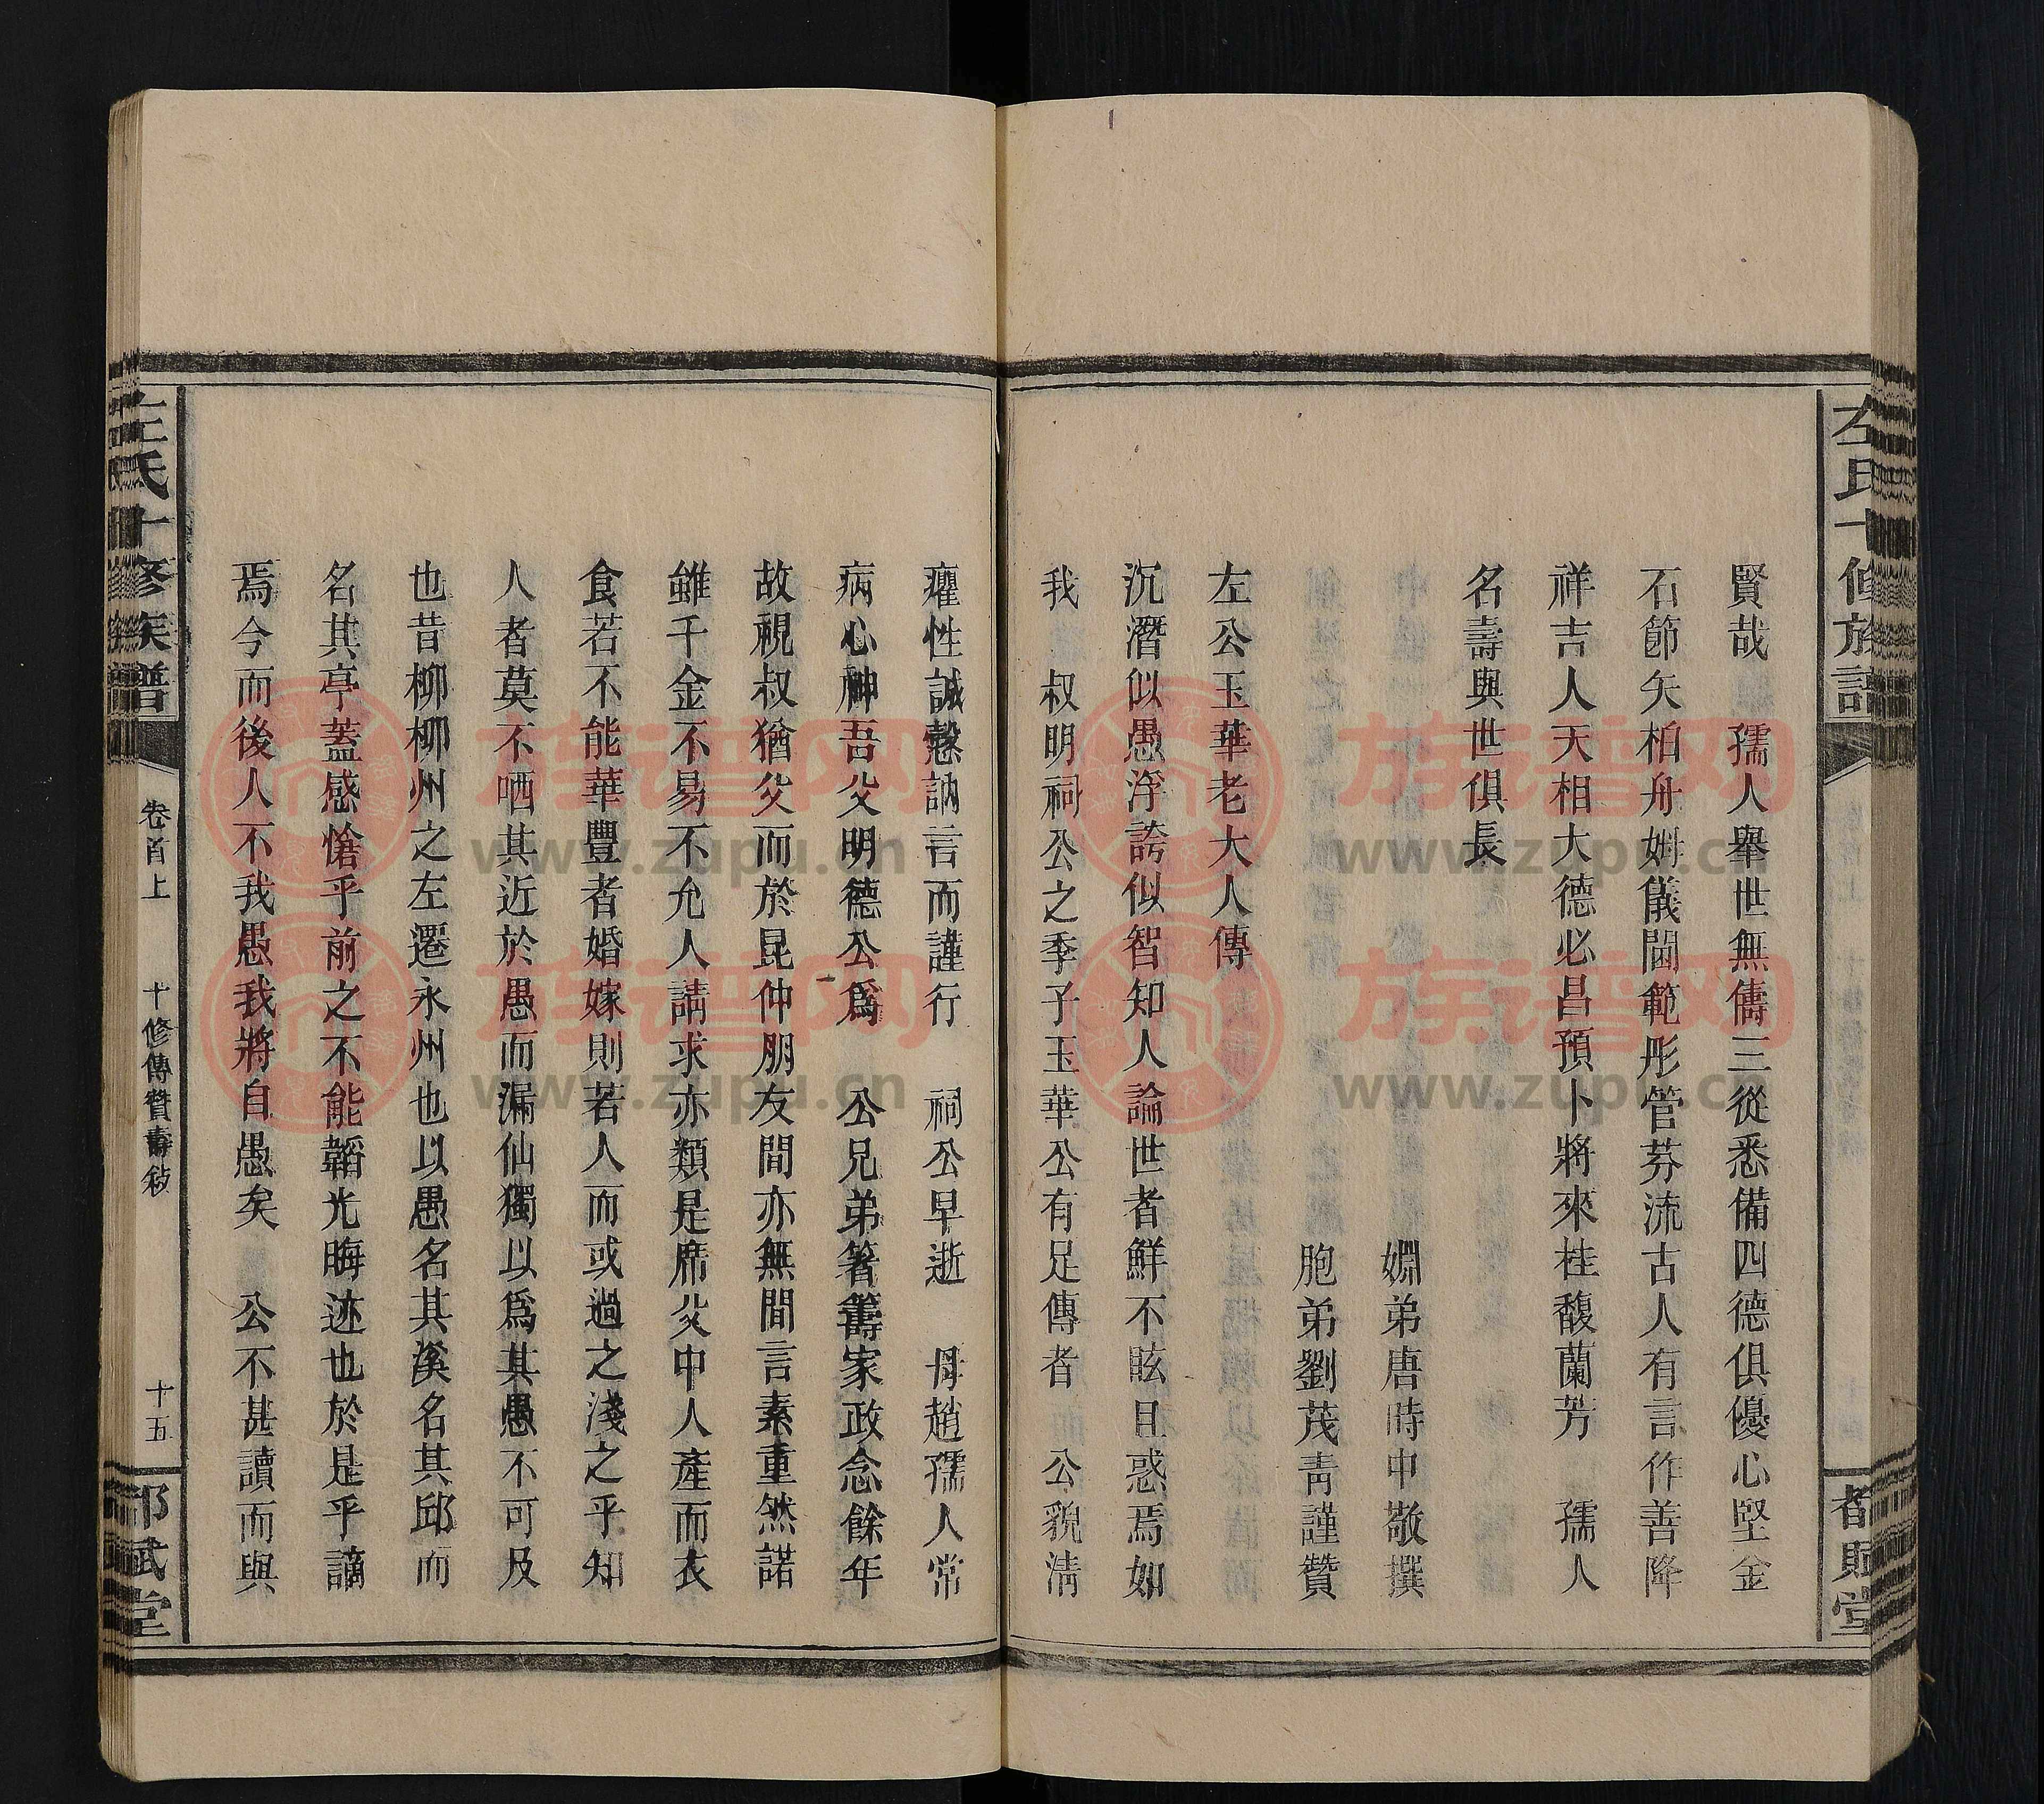 左氏十修族譜
都賦堂
賢哉　孺人舉世無儔三從悉備四德俱優心堅金
石節矢柏舟姆儀閫範彤管芬流古人有言作善降
祥吉人天相大德必昌預卜將來桂馥蘭芳　孺人
名壽與世俱長
姻弟唐時中敬撰
胞弟劉茂青謹贊
左公玉華老大人傳
沉潛似愚浮誇似智知人論世者鮮不眩且惑焉如
我　叔明祠公之季子玉華公有足傳者　公貌清
癯性誠慤訥言而謹行　祠公早逝　母趙孺人常
病心神吾父明德公爲　公兄弟箸籌家政念餘年
故視叔猶父而於昆仲朋友間亦無間言素重然諾
雖千金不易不允人請求亦類是席父中人產而衣
食若不能華豐者婚嫁則若人而或過之淺之乎知
人者莫不哂其近於愚而漏仙獨以爲其愚不可及
也昔柳柳州之左遷永州也以愚名其溪名其邱而
名其亭蓋感愴乎前之不能韜光晦迹也於是乎謫
焉今而後人不我愚我將自愚矣　公不甚讀而與
左氏十修族譜
卷首上
十修傳贊壽
十五
都賦堂
族谱网
www.zupu.cn
族谱网
www.zupu.cn
族谱网
www.zupu.cn
族谱网
www.zupu.cn